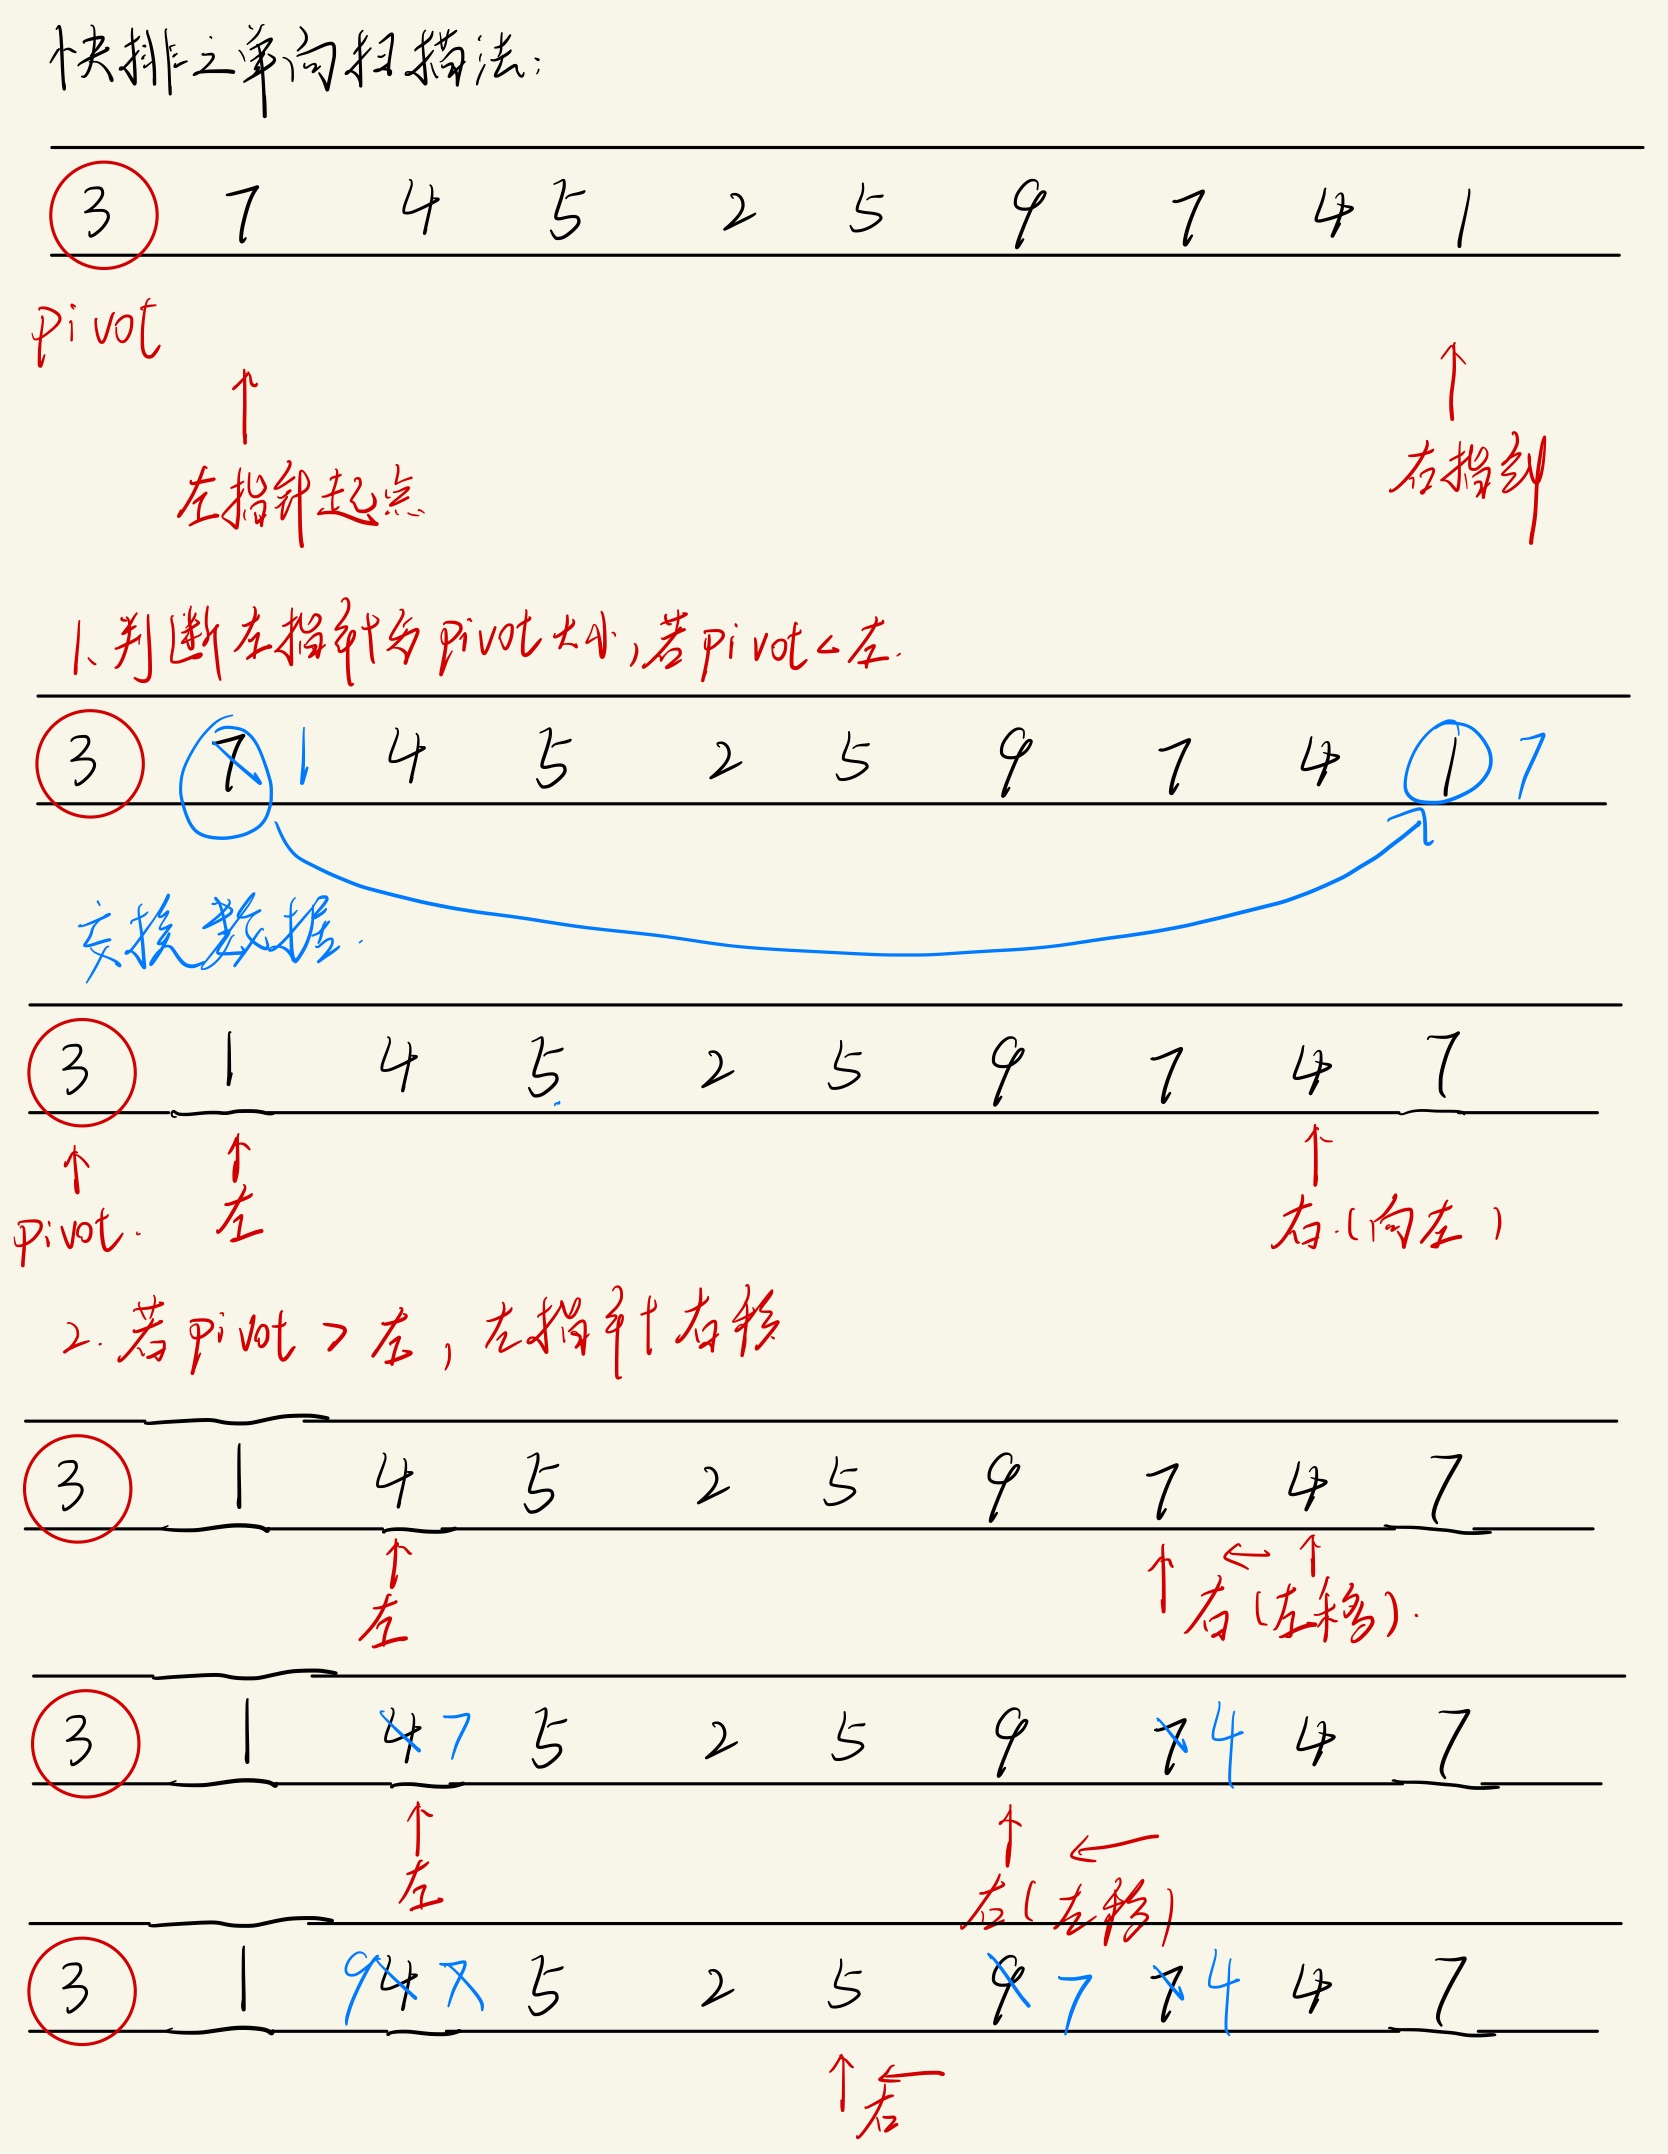 快排之单向扫描法:
3 7 4 5 2 5 9 7 4 1
pivot
左指针起点
右指针
1、判断左指针与pivot大小,若pivot<左.
3 7 1 4 5 2 5 9 7 4 1 7
交换数据.
3 1 4 5 2 5 9 7 4 7
pivot. 左 右.(向左)
2. 若pivot > 左, 左指针右移
3 1 4 5 2 5 9 7 4 7
左 右(左移).
3 1 4 7 5 2 5 9 7 4 4 7
左 右(左移)
3 1 9 4 7 5 2 5 9 7 7 4 4 7
右